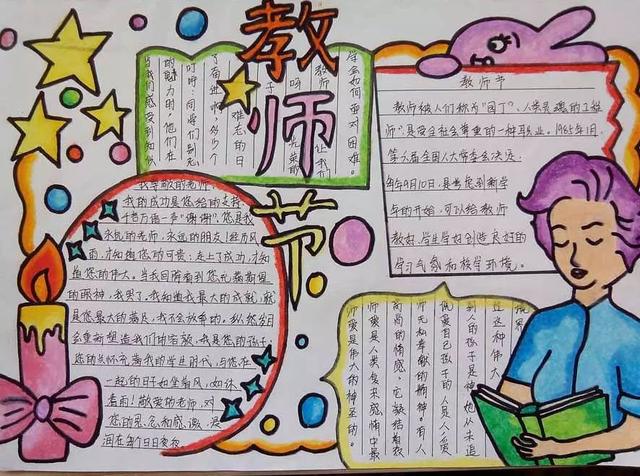 教师节
教师节
教师被人们称为"园丁"、人类灵魂的工程
师",是受全社会尊重的一种职业。1985年1月,
第六届全国人大常委会决定
每年9月10日,是考虑到新学
年的开始,可以给教师
教好、学生学好创造良好的
学习气氛和校学环境。
学会如何面对困难。
让我们
教师
吗
难忘的日
了奋进
多少个
叮咛:同学们别忘
的魅力时,他们在
当我们感受到知识
我尊敬的老师:
我的成功是您给的支持
千言万语一声"谢谢",您是我
永远的老师,永远的朋友!经历风
雨,才知道您的可贵;走上了成功,才知
道您的伟大。当我回眸看到您充满期望
的眼神,我哭了。我知道我最大的成就,就
是您最大的满足,我不会放弃的。纵然岁月
会重新塑造我们的容貌,我是您的孩子。
您的关怀充满我的学生时代,与您在
一起的日子如坐春风、如沐
春雨!敬爱的老师,对
您的思念和感谢,浸
润在每个日日夜夜
世界
过这种伟大
别人的孩子是神,他从未追
说爱自己孩子的人是人,爱
师无私奉献的精神,有人
高尚的情感,它凝结着教
师爱是人类复杂感情中最
师爱是伟大的神圣的。